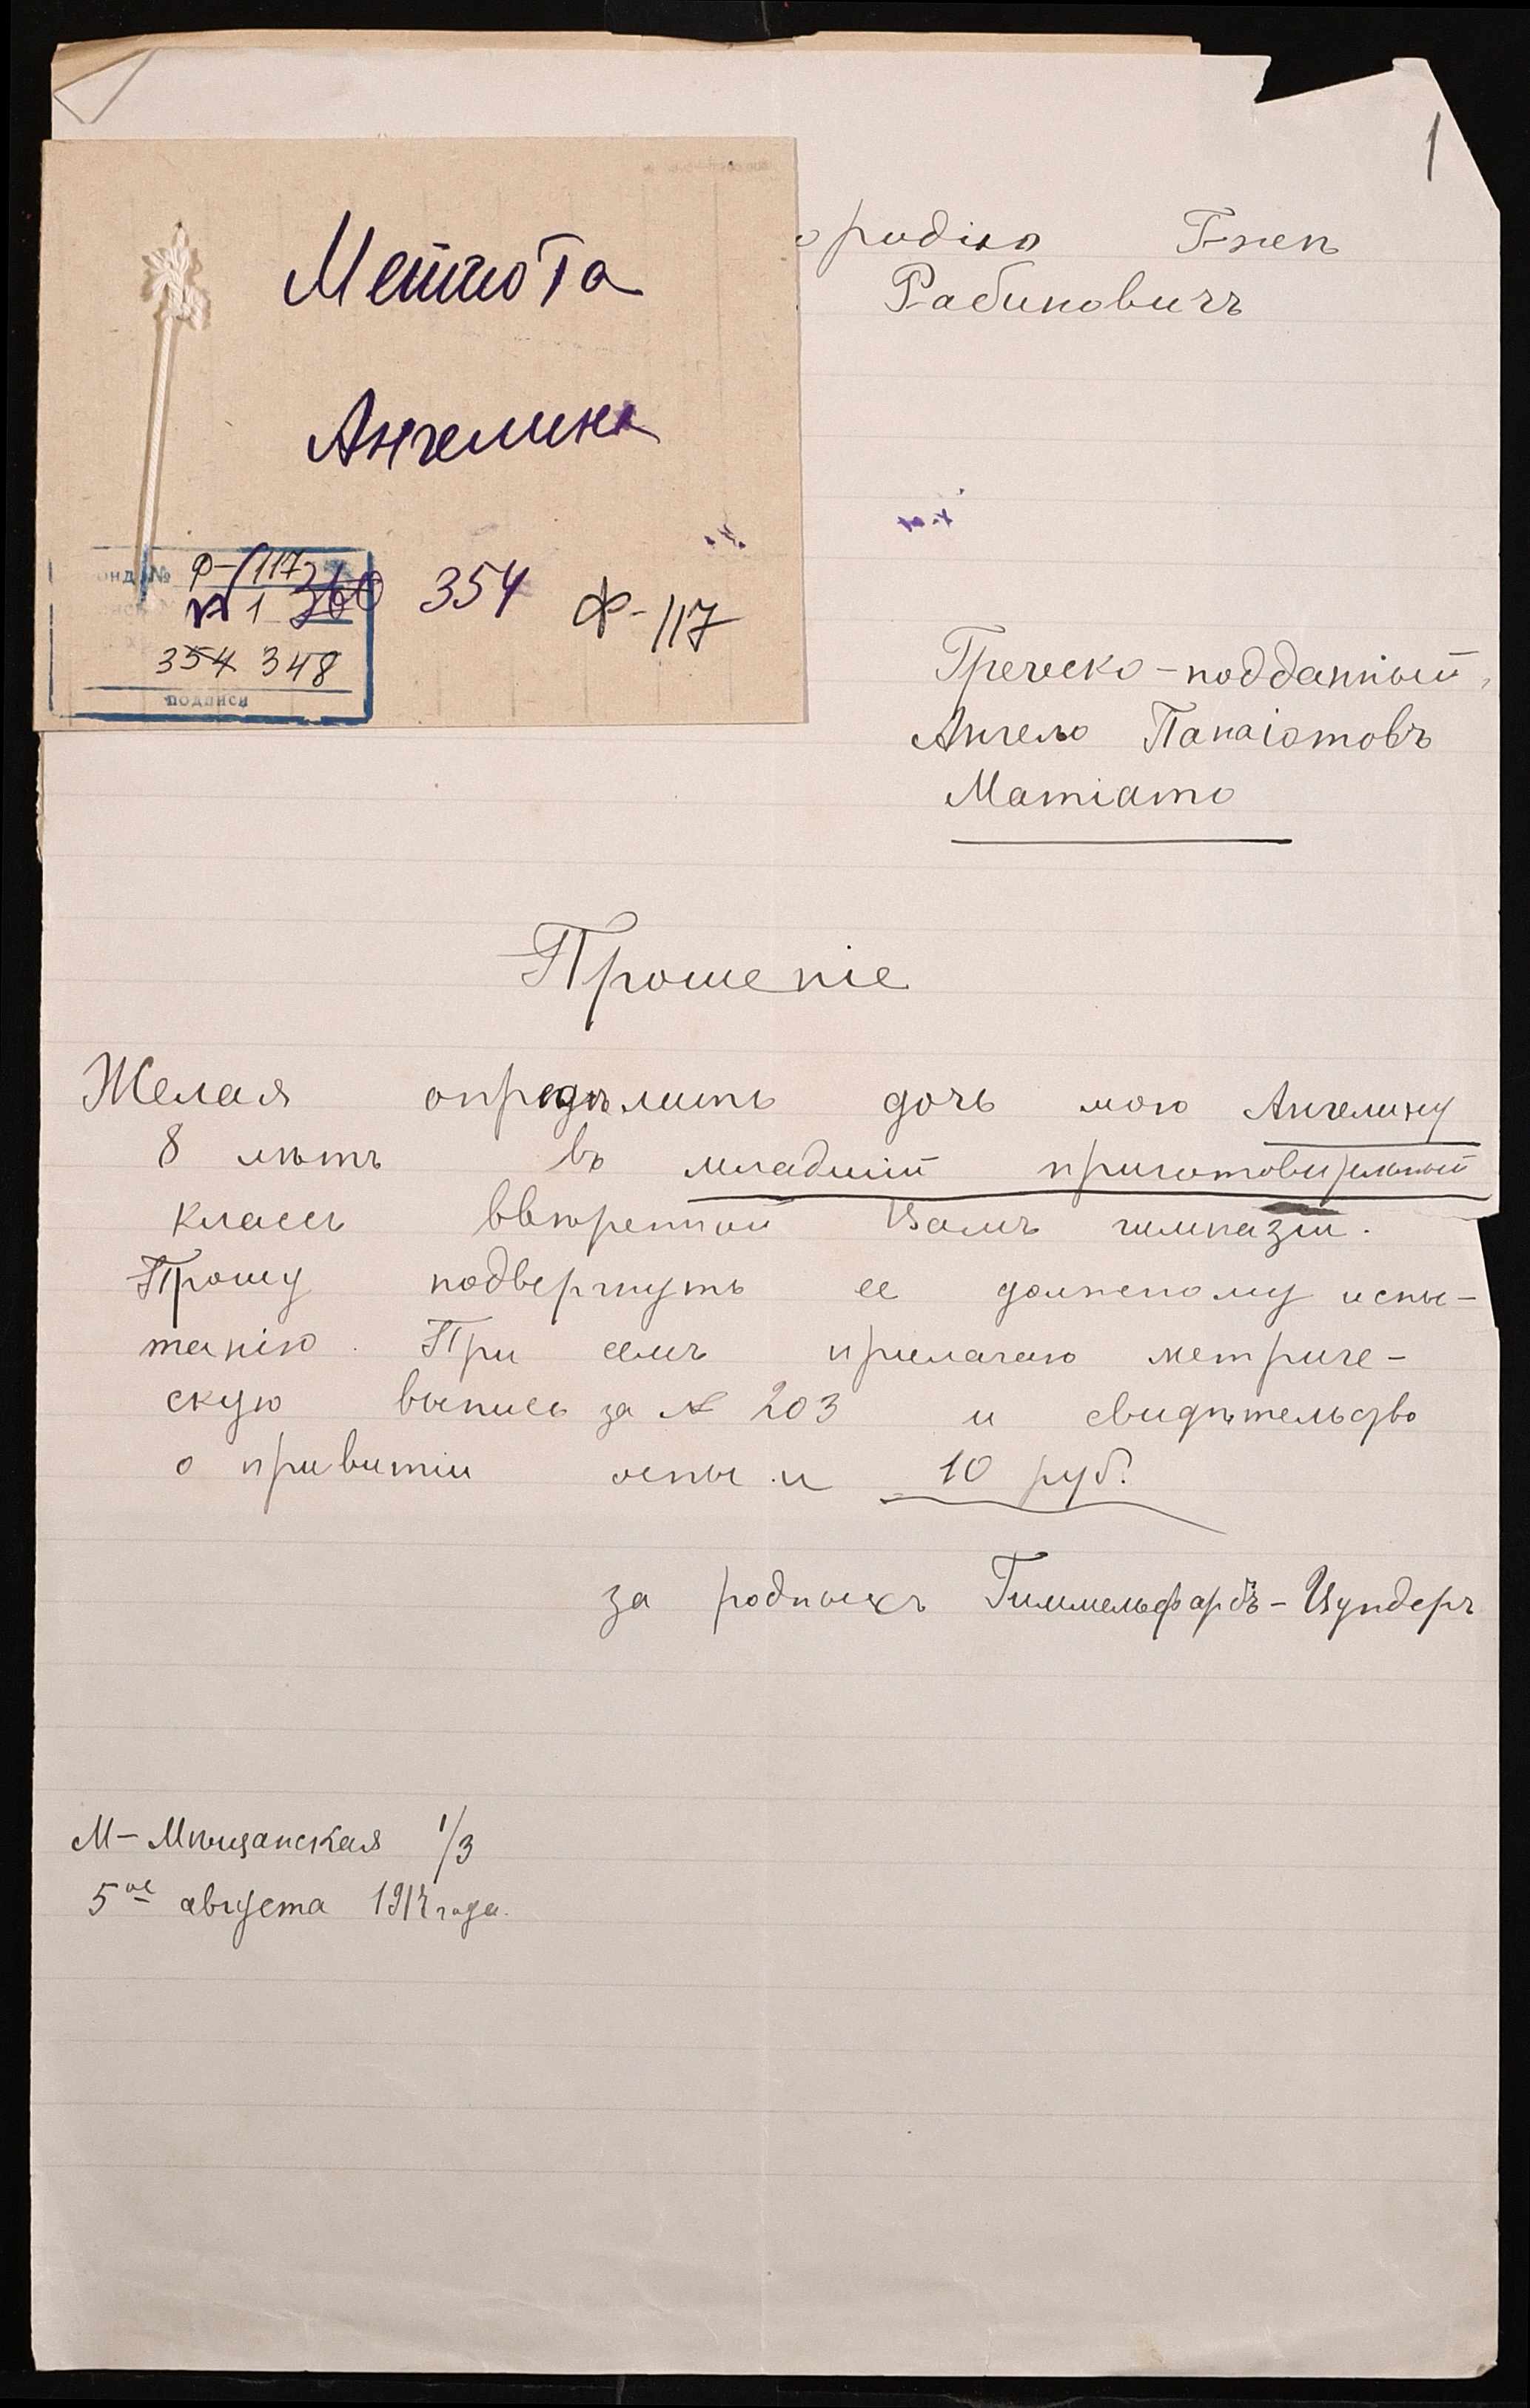 1
ородію Г-жѣ
Рабиновичъ
Ангелина
Ф-117
№ 1 360 354 Ф-117
354 348
подписи
Греческо-подданный,
Ангело Панаіотовъ
Матіато
Прошеніе
Желая опредѣлить дочь мою Ангелину
8 лѣтъ въ младшій приготовительный
классъ ввѣренной Вамъ гимназіи.
Прошу подвергнуть ее должному испы-
танію. При семъ прилагаю метриче-
скую выпись за № 203 и свидѣтельство
о привитіи оспы и 10 руб.
за родныхъ Гиммельфарбъ-Цундеръ
М-Мѣщанская 1/3
5ое августа года.